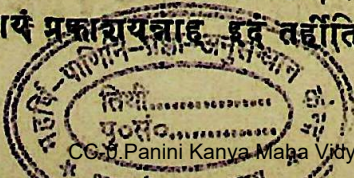 यं प्रकाशयन्नाह इदं तर्हीति
महर्षि-पाणिनि-
अनुसन्धान
तिथी..................
पु०सं०..................
CC-0.Panini Kanya Maha Vidy